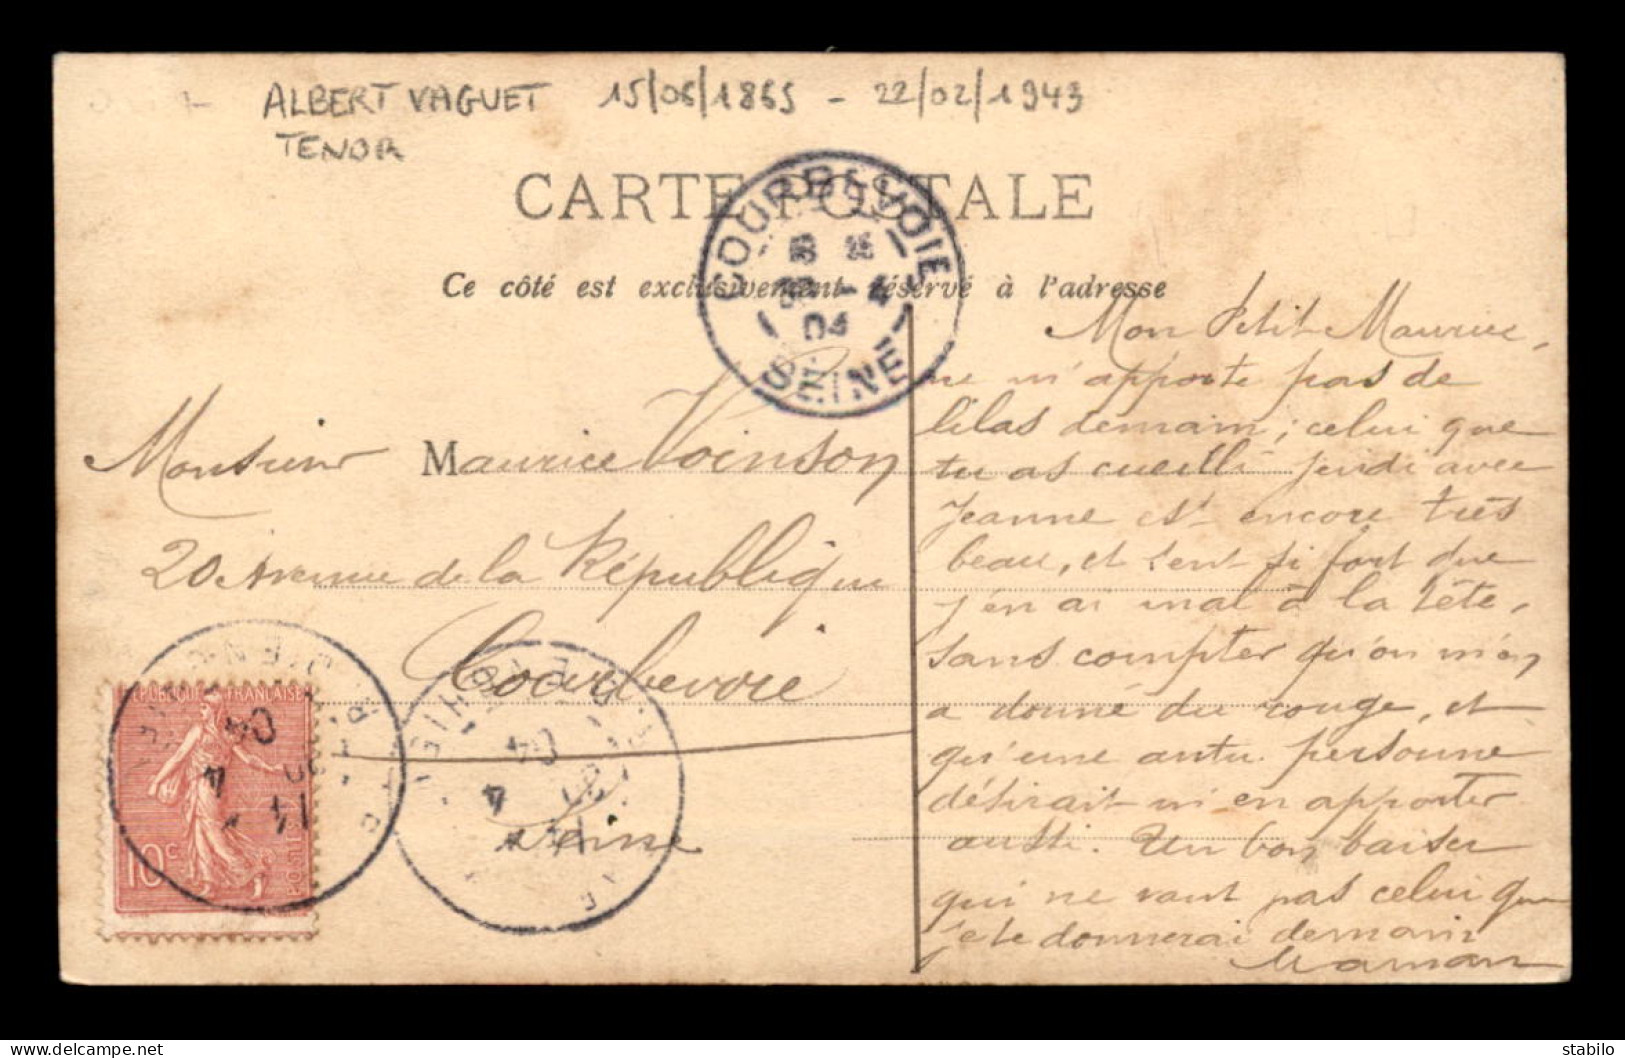 ALBERT VAGUET 15/06/1865 - 22/02/1943
TENOR
CARTE POSTALE
Ce côté est exclusivement réservé à l'adresse
COURBEVOIE
04
SEINE
Monsieur Maurice Voinson
20 Avenue de la République
Courbevoie
Seine
Mon Petit Maurice,
ne m'apporte pas de
lilas demain; celui que
tu as cueilli jeudi avec
Jeanne est encore très
beau, et sent si fort que
j'en ai mal à la tête,
sans compter qu'on m'en
a donné du rouge, et
qu'une autre personne
désirait m'en apporter
aussi. Un bon baiser
qui ne vaut pas celui que
je te donnerai demain
Maman
RÉPUBLIQUE FRANÇAISE
10c
POSTES
04
4
11
04
4
delcampe.net
stabilo